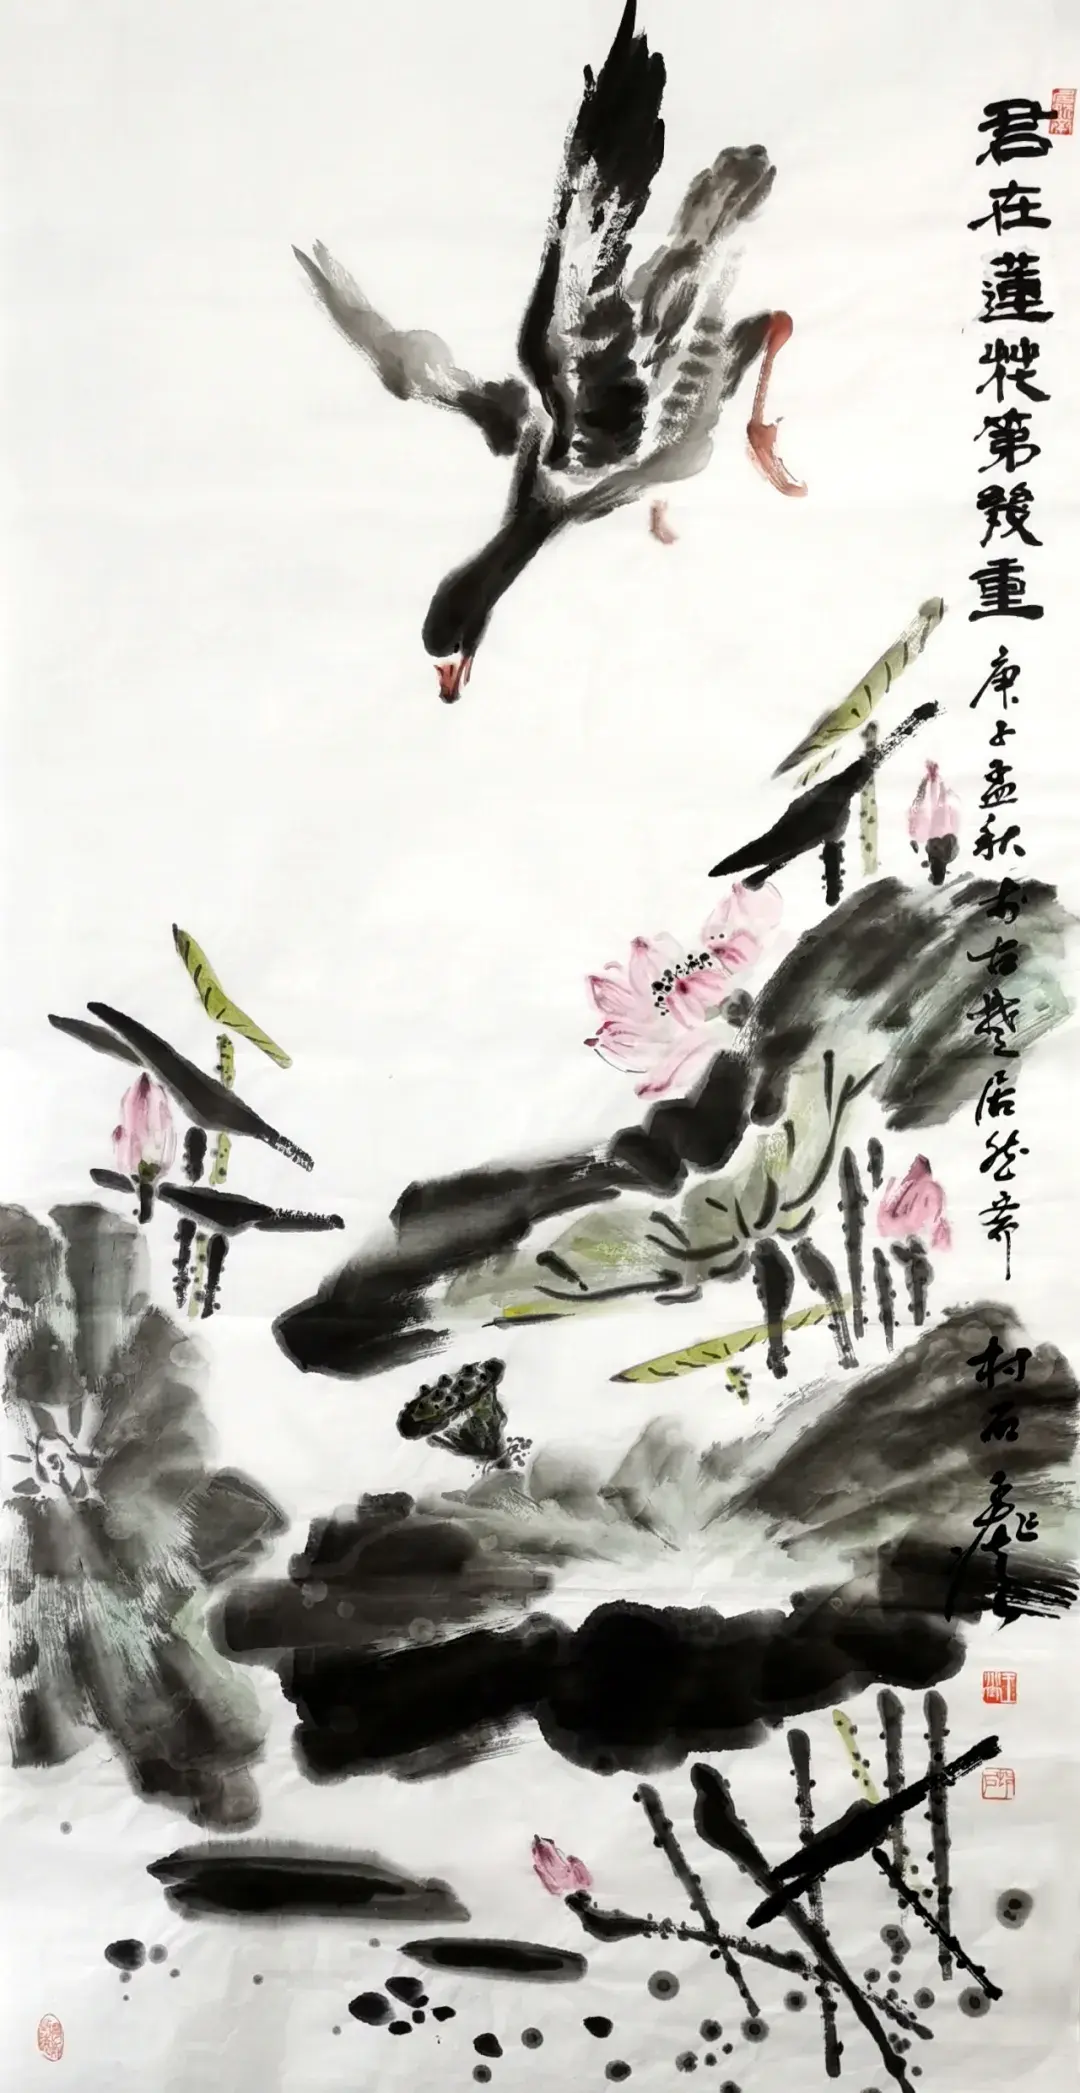 君在蓮花第幾重 庚子孟秋於古楚居然斋 村石